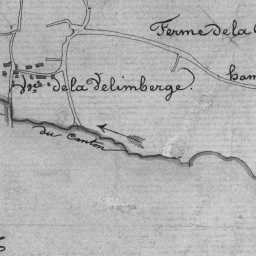 Ferme de la
Ham
de la Velimberge.
du Canton